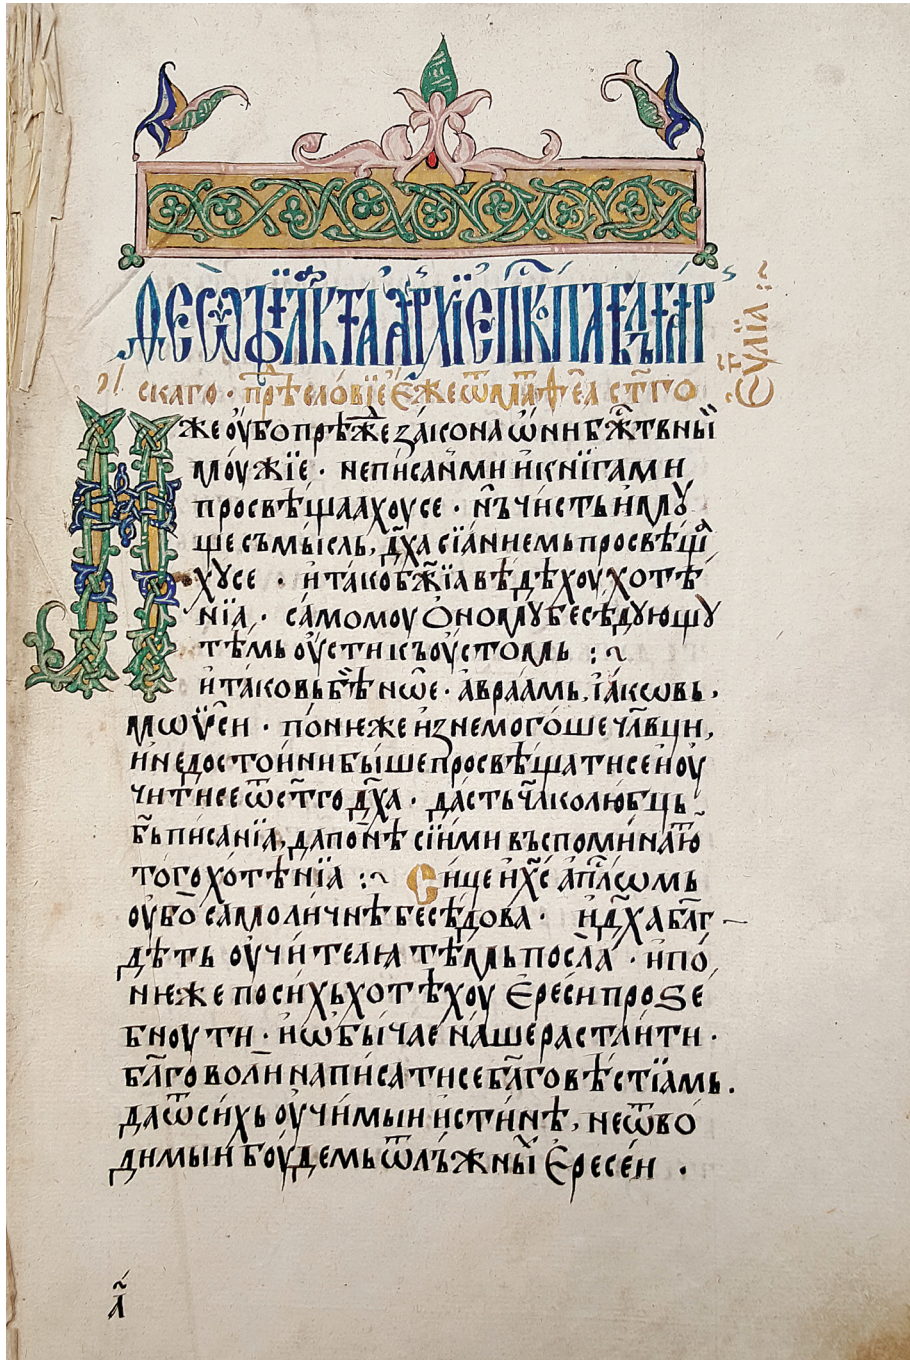 Ѳеѡфѷлакта архїеп҃кпа блъгар
скаго · прѣⷣсловїе є҆же ѿ маⷴѳеа ст҃го
є҆ѵⷢлїа :~
Иже ᲂу҆бо прѣжⷣе закона ѡ҆ни бж҃твнїи
моужїе · не писан́ми и҆ книгами
просвѣщаахоу се · нъ чисть и҆мꙋ
ще съмысль, дх҃а сїанїемь просвѣщаⷯ
хꙋ се · и҆ тако бж҃їа вѣдѣхоу хотѣ
нїа · самомоу ѻ҆номꙋ бесѣдꙋющꙋ
тѣмь ᲂу҆сти къ ᲂу҆стомь :~
и҆ таковь бѣ нѡ҆е · авраамь, і҆аковь,
мѡѵ̈сеи · понѥже и҆знемогоше чл҃вци,
и҆ недостоини быше просвѣщати се и҆ ᲂу
чити се ѿ ст҃го дх҃а · дасть чл҃аколюбць
бь҃ писанїа, да понѣ сїими въспоминаюⷮ
того хотѣнїа :~ Сице и҆ х҃с ап҃лѡмь
ᲂу҆бѡ само личнѣ бесѣдова · и҆ дх҃а бл҃г
дѣть ᲂу҆чителꙗ тѣмь посла · и҆ по
нѥже по сихь хотѣхоу є҆реси прозе
бноути · и҆ ѡ҆бычае наше растлити ·
бл҃говоли написати се бл҃говѣстїамь .
да ѿ сихь ᲂу҆чимыи и҆стинѣ, не ѿво
димыи боудемь ѿ лъжнїи є҆ресеи ·
а҃